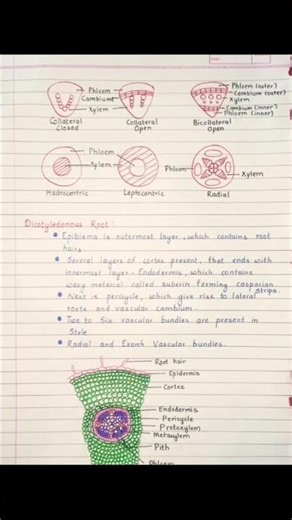 Phloem
Cambium
Xylem
Collateral
Closed
Collateral
Open
Phloem (outer)
Cambium (outer)
Xylem
Cambium (inner)
Phloem (inner)
Bicollateral
Open
Phloem
Xylem
Hadrocentric
Leptocentric
Phloem
Xylem
Radial
Dicotyledonous Root:
Epiblema is outermost layer, which contains root
hairs.
Several layers of cortex present, that ends with
innermost layer - Endodermis, which contains
waxy material called suberin forming casparian
strips.
Next is pericycle, which give rise to lateral
roots and vascular cambium.
Two to Six vascular bundles are present in
Stele.
Radial and Exarch Vascular bundles.
Root hair
Epidermis
Cortex
Endodermis
Pericycle
Protoxylem
Metaxylem
Pith
Phloem